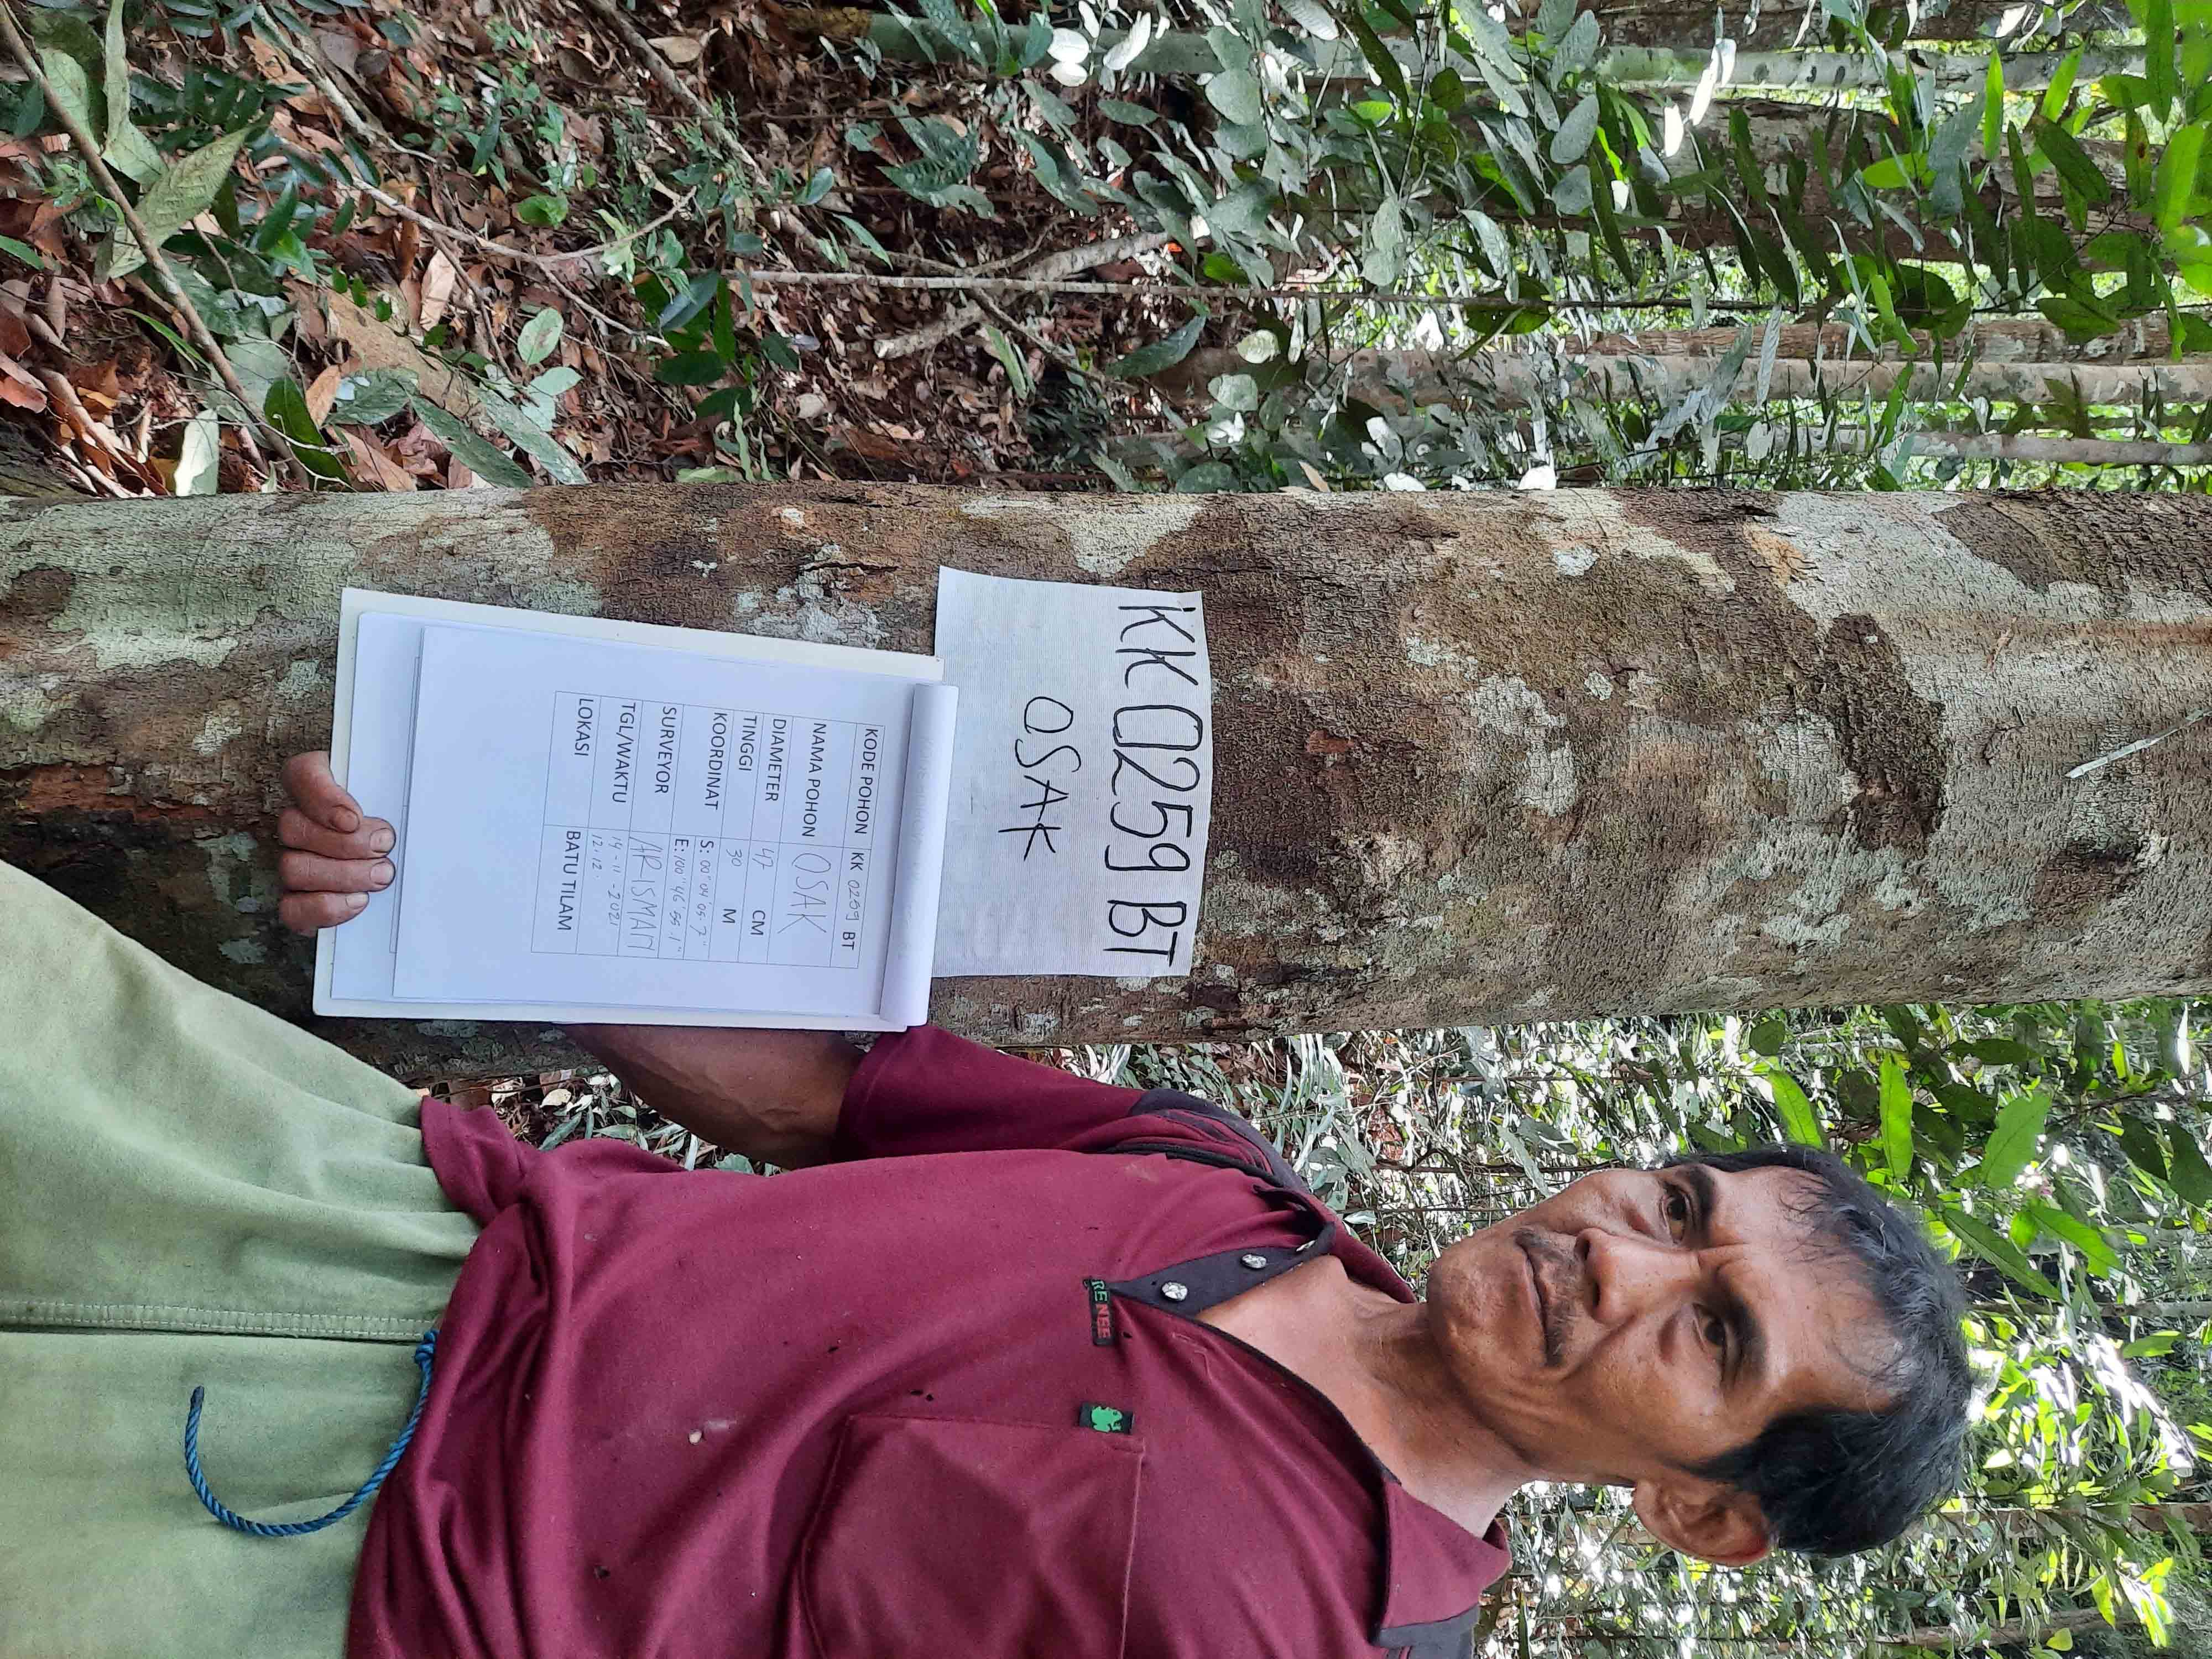 KK 0259 BT
OSAK
KODE POHON KK 0259 BT
NAMA POHON OSAK
DIAMETER 47 CM
TINGGI 30 M
KOORDINAT S: 00° 04' 05.7"
E: 100° 46' 55.1"
SURVEYOR ARISMAN
TGL/WAKTU 14-11-2021
12.12.
LOKASI BATU TILAM
RENEE